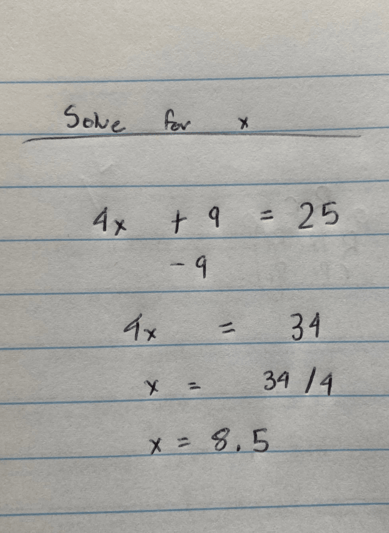 Solve for x
4x + 9 = 25
- 9
4x = 34
x = 34/4
x = 8.5